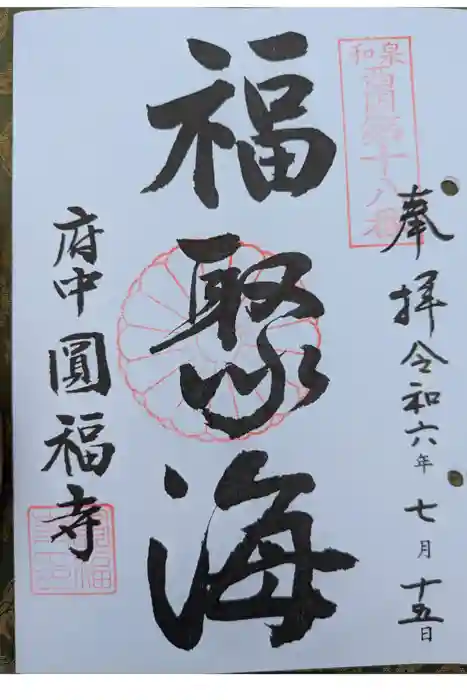 和泉
西国第十八番
奉拝令和六年七月十五日
福聚海
府中圓福寺